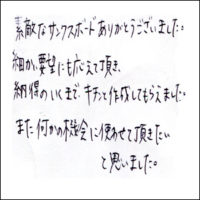 素敵なサンクスボードありがとうございました。
細かい要望にも応えて頂き、
納得のいくまで、キチンと作成してもらえました。
また何かの機会に使わせて頂きたい
と思いました。